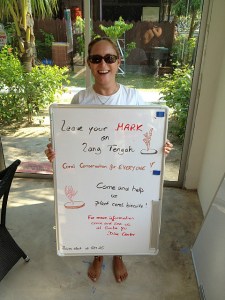 Leave your MARK
on
Lang Tengah
Coral Conservation for EVERYONE!
Come and help
us
plant coral biscuits!
For more information
come and see us
at
Dive Center